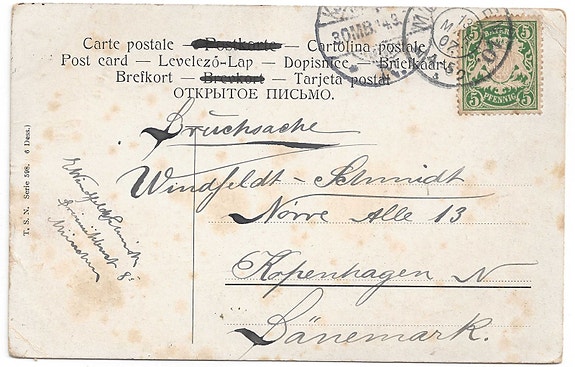 Carte postale — Postkarte — Cartolina postale
Post card — Levelező-Lap — Dopisnice — Briefkaart
Brefkort — Brevkort — Tarjeta postal
ОТКРЫТОЕ ПИСЬМО.
BAYERN
5 5
PFENNIG
Drucksache
Windfeldt-Schmidt
Nørre Alle 13
Kopenhagen N
Dänemark.
Windfeldt Schmidt
8
München
T. S. N. Serie 598. 6 Dess.)